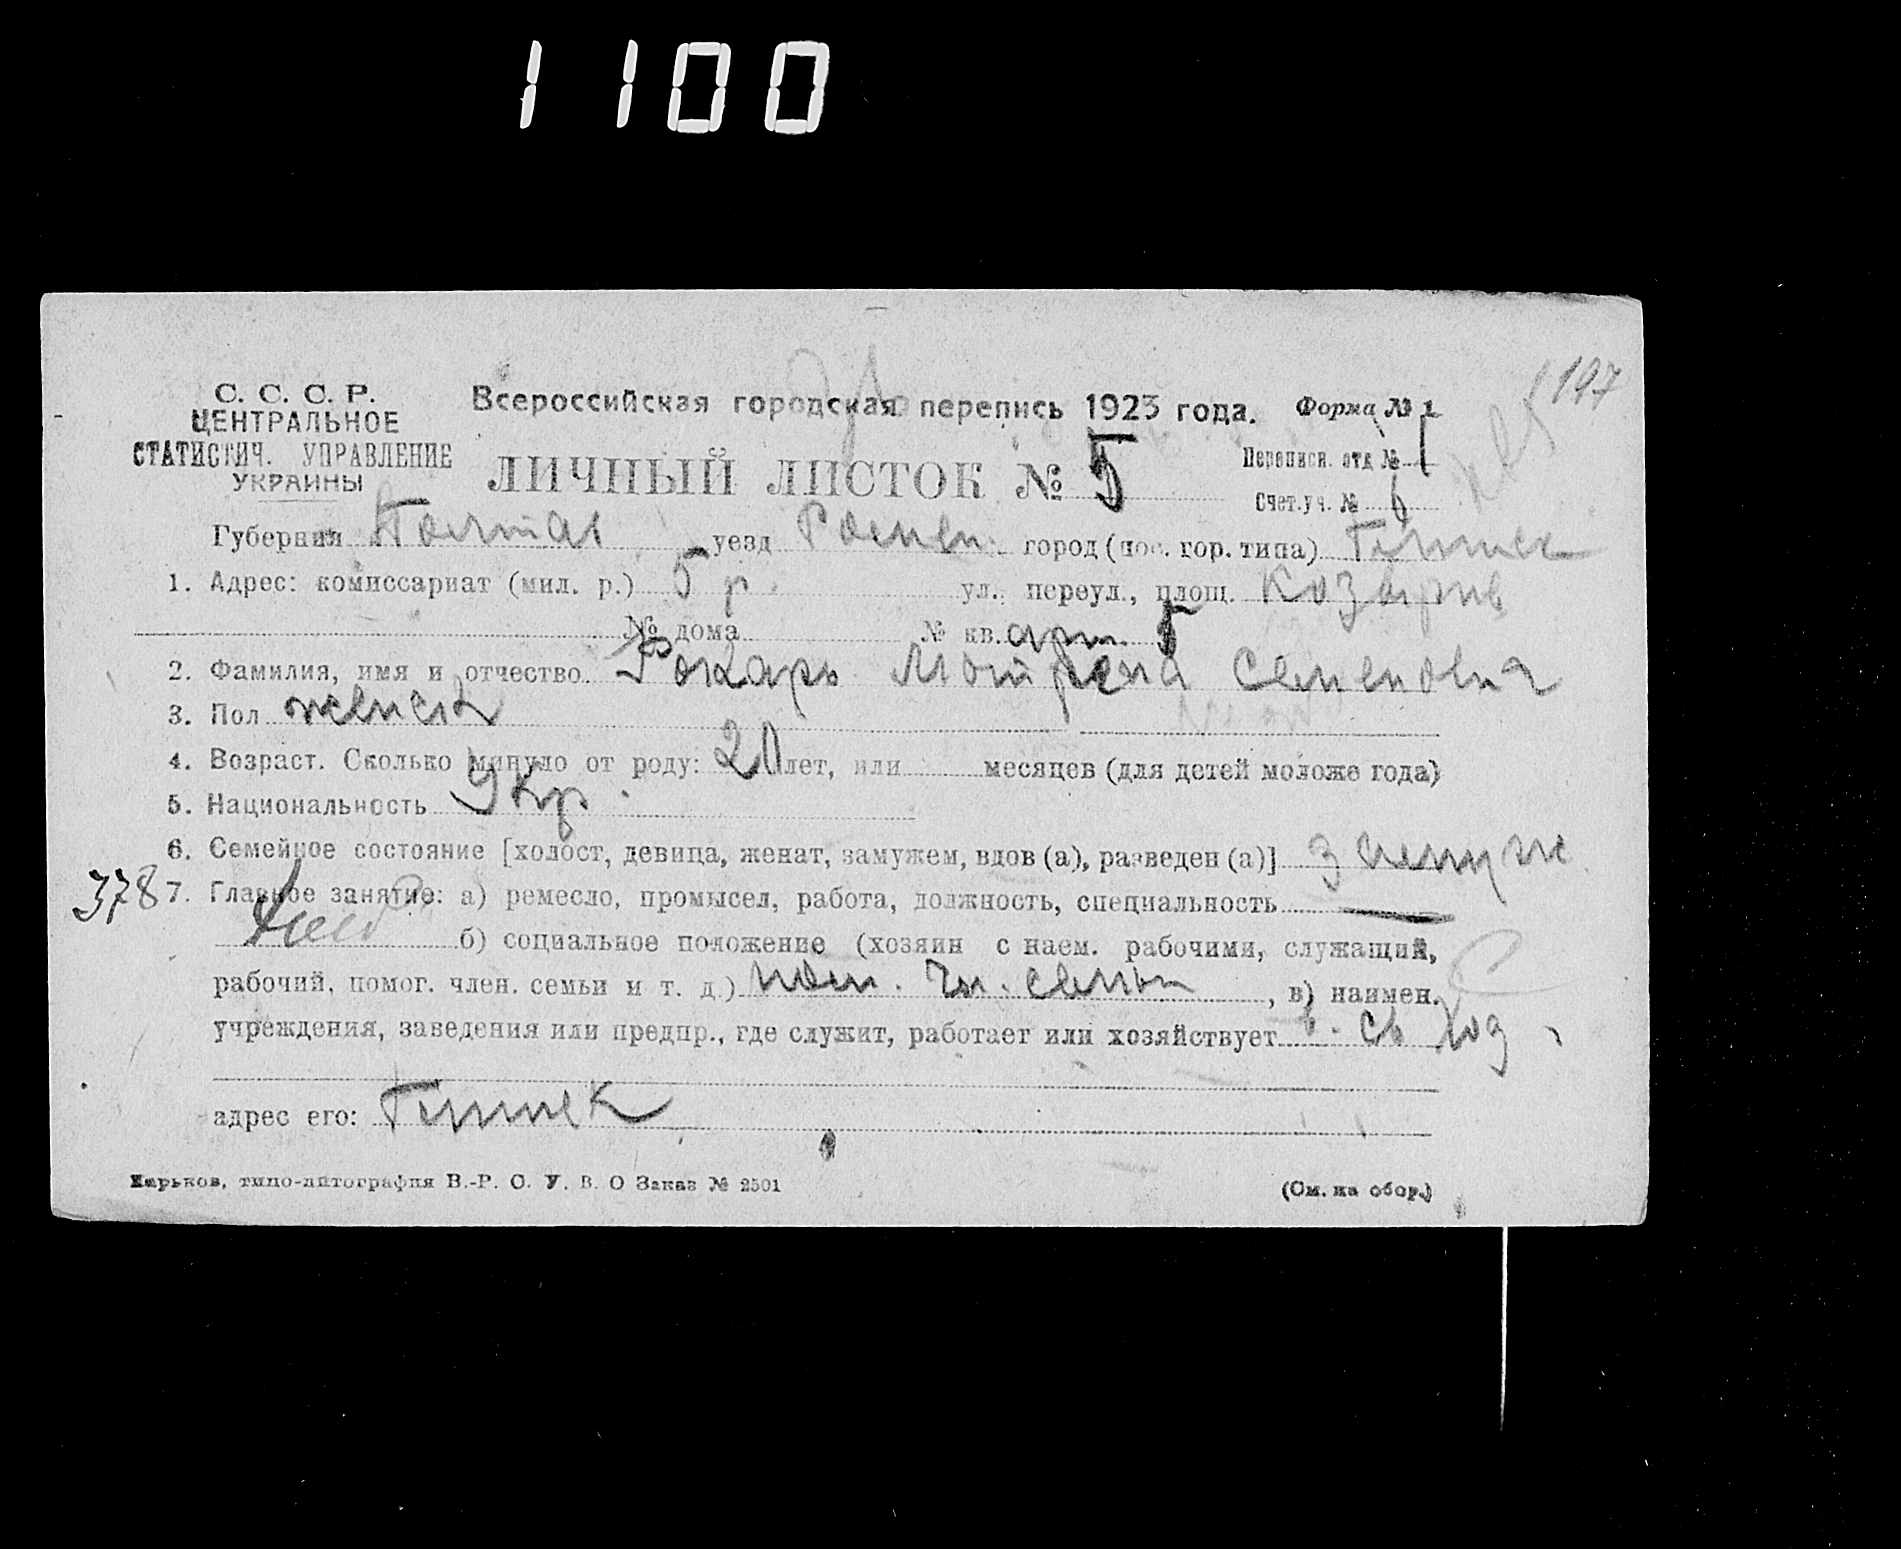 1100
197
С. С. С. Р.
ЦЕНТРАЛЬНОЕ
СТАТИСТИЧ. УПРАВЛЕНИЕ
УКРАИНЫ
Всероссийская городская перепись 1923 года. Форма № 1
ЛИЧНЫЙ ЛИСТОК № 5
Переписн. отд № 1
Счет.уч. № 6
Губерния Полтав уезд Ромен. город (пос. гор. типа)
1. Адрес: комиссариат (мил. р.) 5 р. ул., переул., площ.
№ дома № кв. 5
2. Фамилия, имя и отчество Мотрена Семеновна
3. Пол женск
4. Возраст. Сколько минуло от роду: 20 лет, или месяцев (для детей моложе года)
5. Национальность Укр.
6. Семейное состояние [холост, девица, женат, замужем, вдов (а), разведен (а)] замуж
378 7. Главное занятие: а) ремесло, промысел, работа, должность, специальность —
б) социальное положение (хозяин с наем. рабочими, служащий,
рабочий, помог. член. семьи и т. д.) пом. чл. семьи, в) наимен.
учреждения, заведения или предпр., где служит, работает или хозяйствует в. с. хоз
адрес его:
Харьков, типо-литография В.-Р. О. У. В. О Заказ № 2501
(См. на обор.)